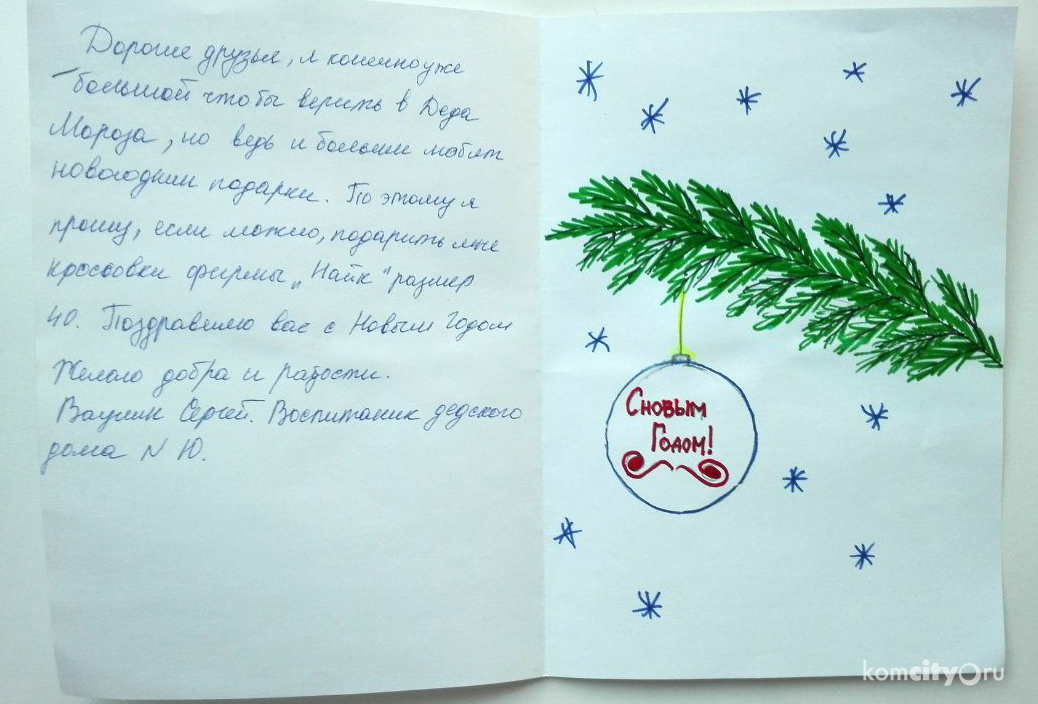 Дорогие друзья, я конечно уже
большой чтобы верить в Деда
Мороза, но ведь и большие любят
новогодние подарки. По этому я
прошу, если можно, подарить мне
кроссовки фирмы „Найк“ размер
40. Поздравляю вас с Новым Годом
Желаю добра и радости.
Ваулин Сергей. Воспитаник дедского
дома N 10.
Сновым
Годом!
komcity.ru